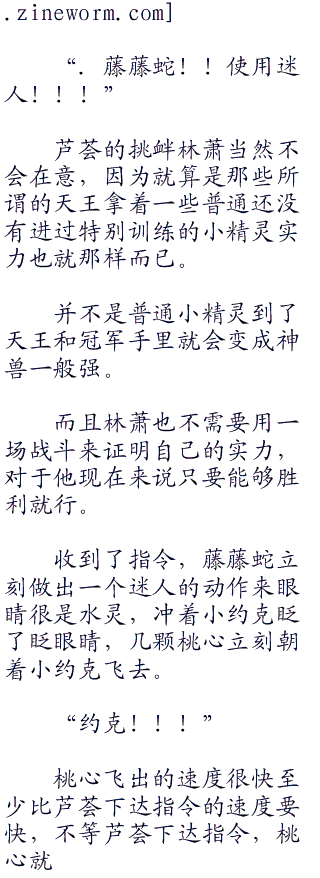 .zineworm.com]
“. 藤藤蛇！！使用迷
人！！！”
芦荟的挑衅林萧当然不
会在意，因为就算是那些所
谓的天王拿着一些普通还没
有进过特别训练的小精灵实
力也就那样而已。
并不是普通小精灵到了
天王和冠军手里就会变成神
兽一般强。
而且林萧也不需要用一
场战斗来证明自己的实力，
对于他现在来说只要能够胜
利就行。
收到了指令，藤藤蛇立
刻做出一个迷人的动作来眼
睛很是水灵，冲着小约克眨
了眨眼睛，几颗桃心立刻朝
着小约克飞去。
“约克！！！”
桃心飞出的速度很快至
少比芦荟下达指令的速度要
快，不等芦荟下达指令，桃
心就